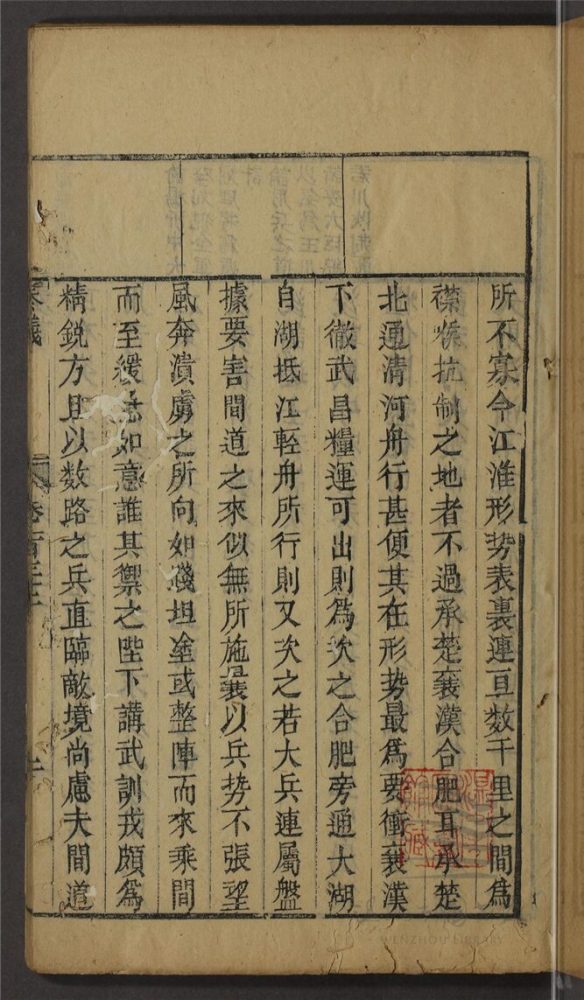 所不寡今江淮形势表裏連亘数千里之間爲
襟喉抗制之地者不過承楚襄漢合肥耳承楚
北通清河舟行甚便其在形势最爲要衝襄漢
下徹武昌糧運可出則爲次之合肥旁通大湖
自湖抵江輕舟所行則又次之若大兵連屬盤
據要害間道之來似無所施曩以兵势不張望
風奔潰虜之所向如踐坦塗或整陣而來乘間
而至緩急如意誰其禦之陛下講武訓戎頗爲
精鋭方且以数路之兵直臨敵境尚慮夫間道
奏議
WENZHOU LIBRARY